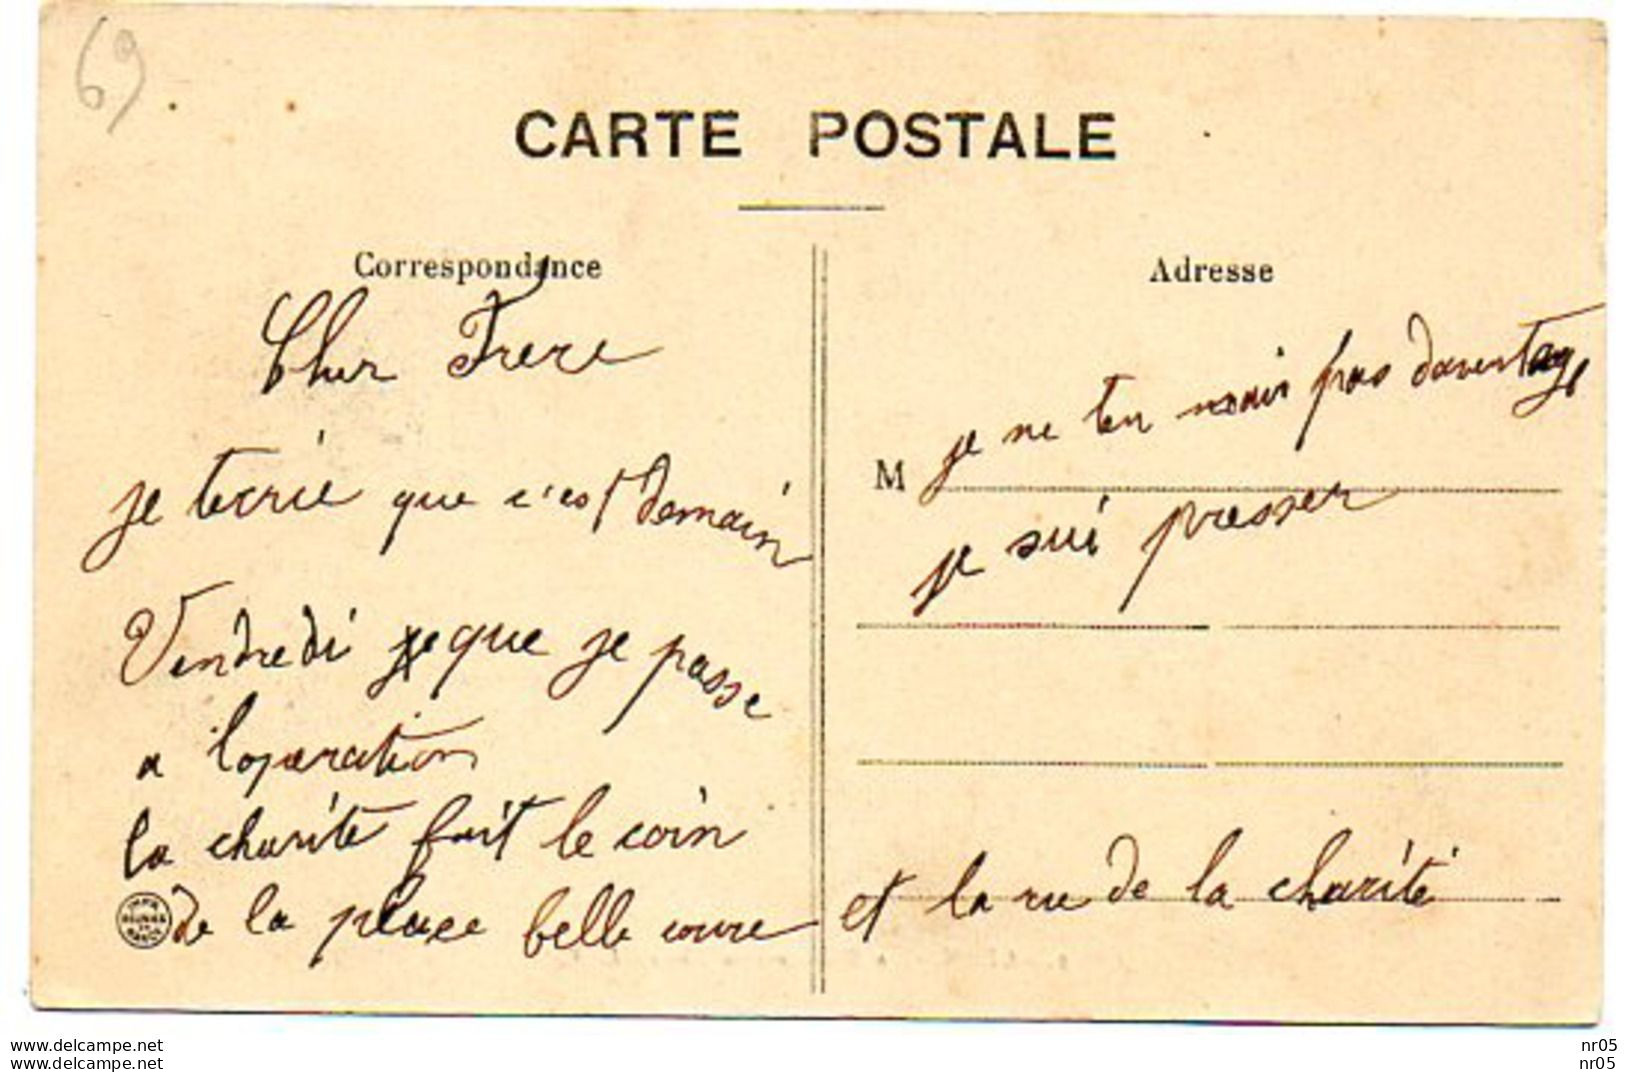 69
CARTE POSTALE
Correspondance
Cher Frere
je tecrie que c'est demain
Vendredi je que je passe
a loparation
la charite fait le coin
de la place belle coure et la ru de la charité
Adresse
je ne ten pas daventage
M
je sui presser
www.delcampe.net
www.delcampe.net
nr05
nr05